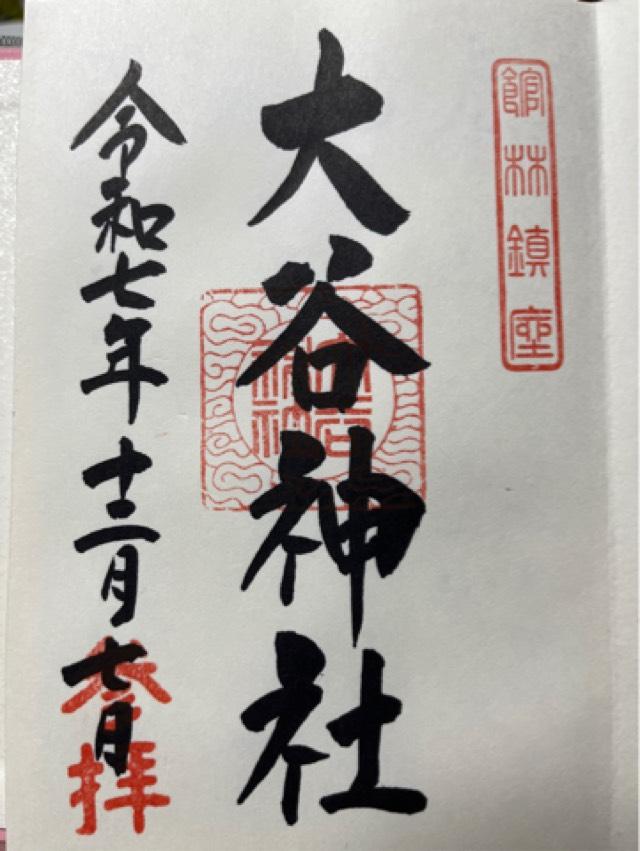 館林鎮座
大谷神社
令和七年十二月七日
参拝